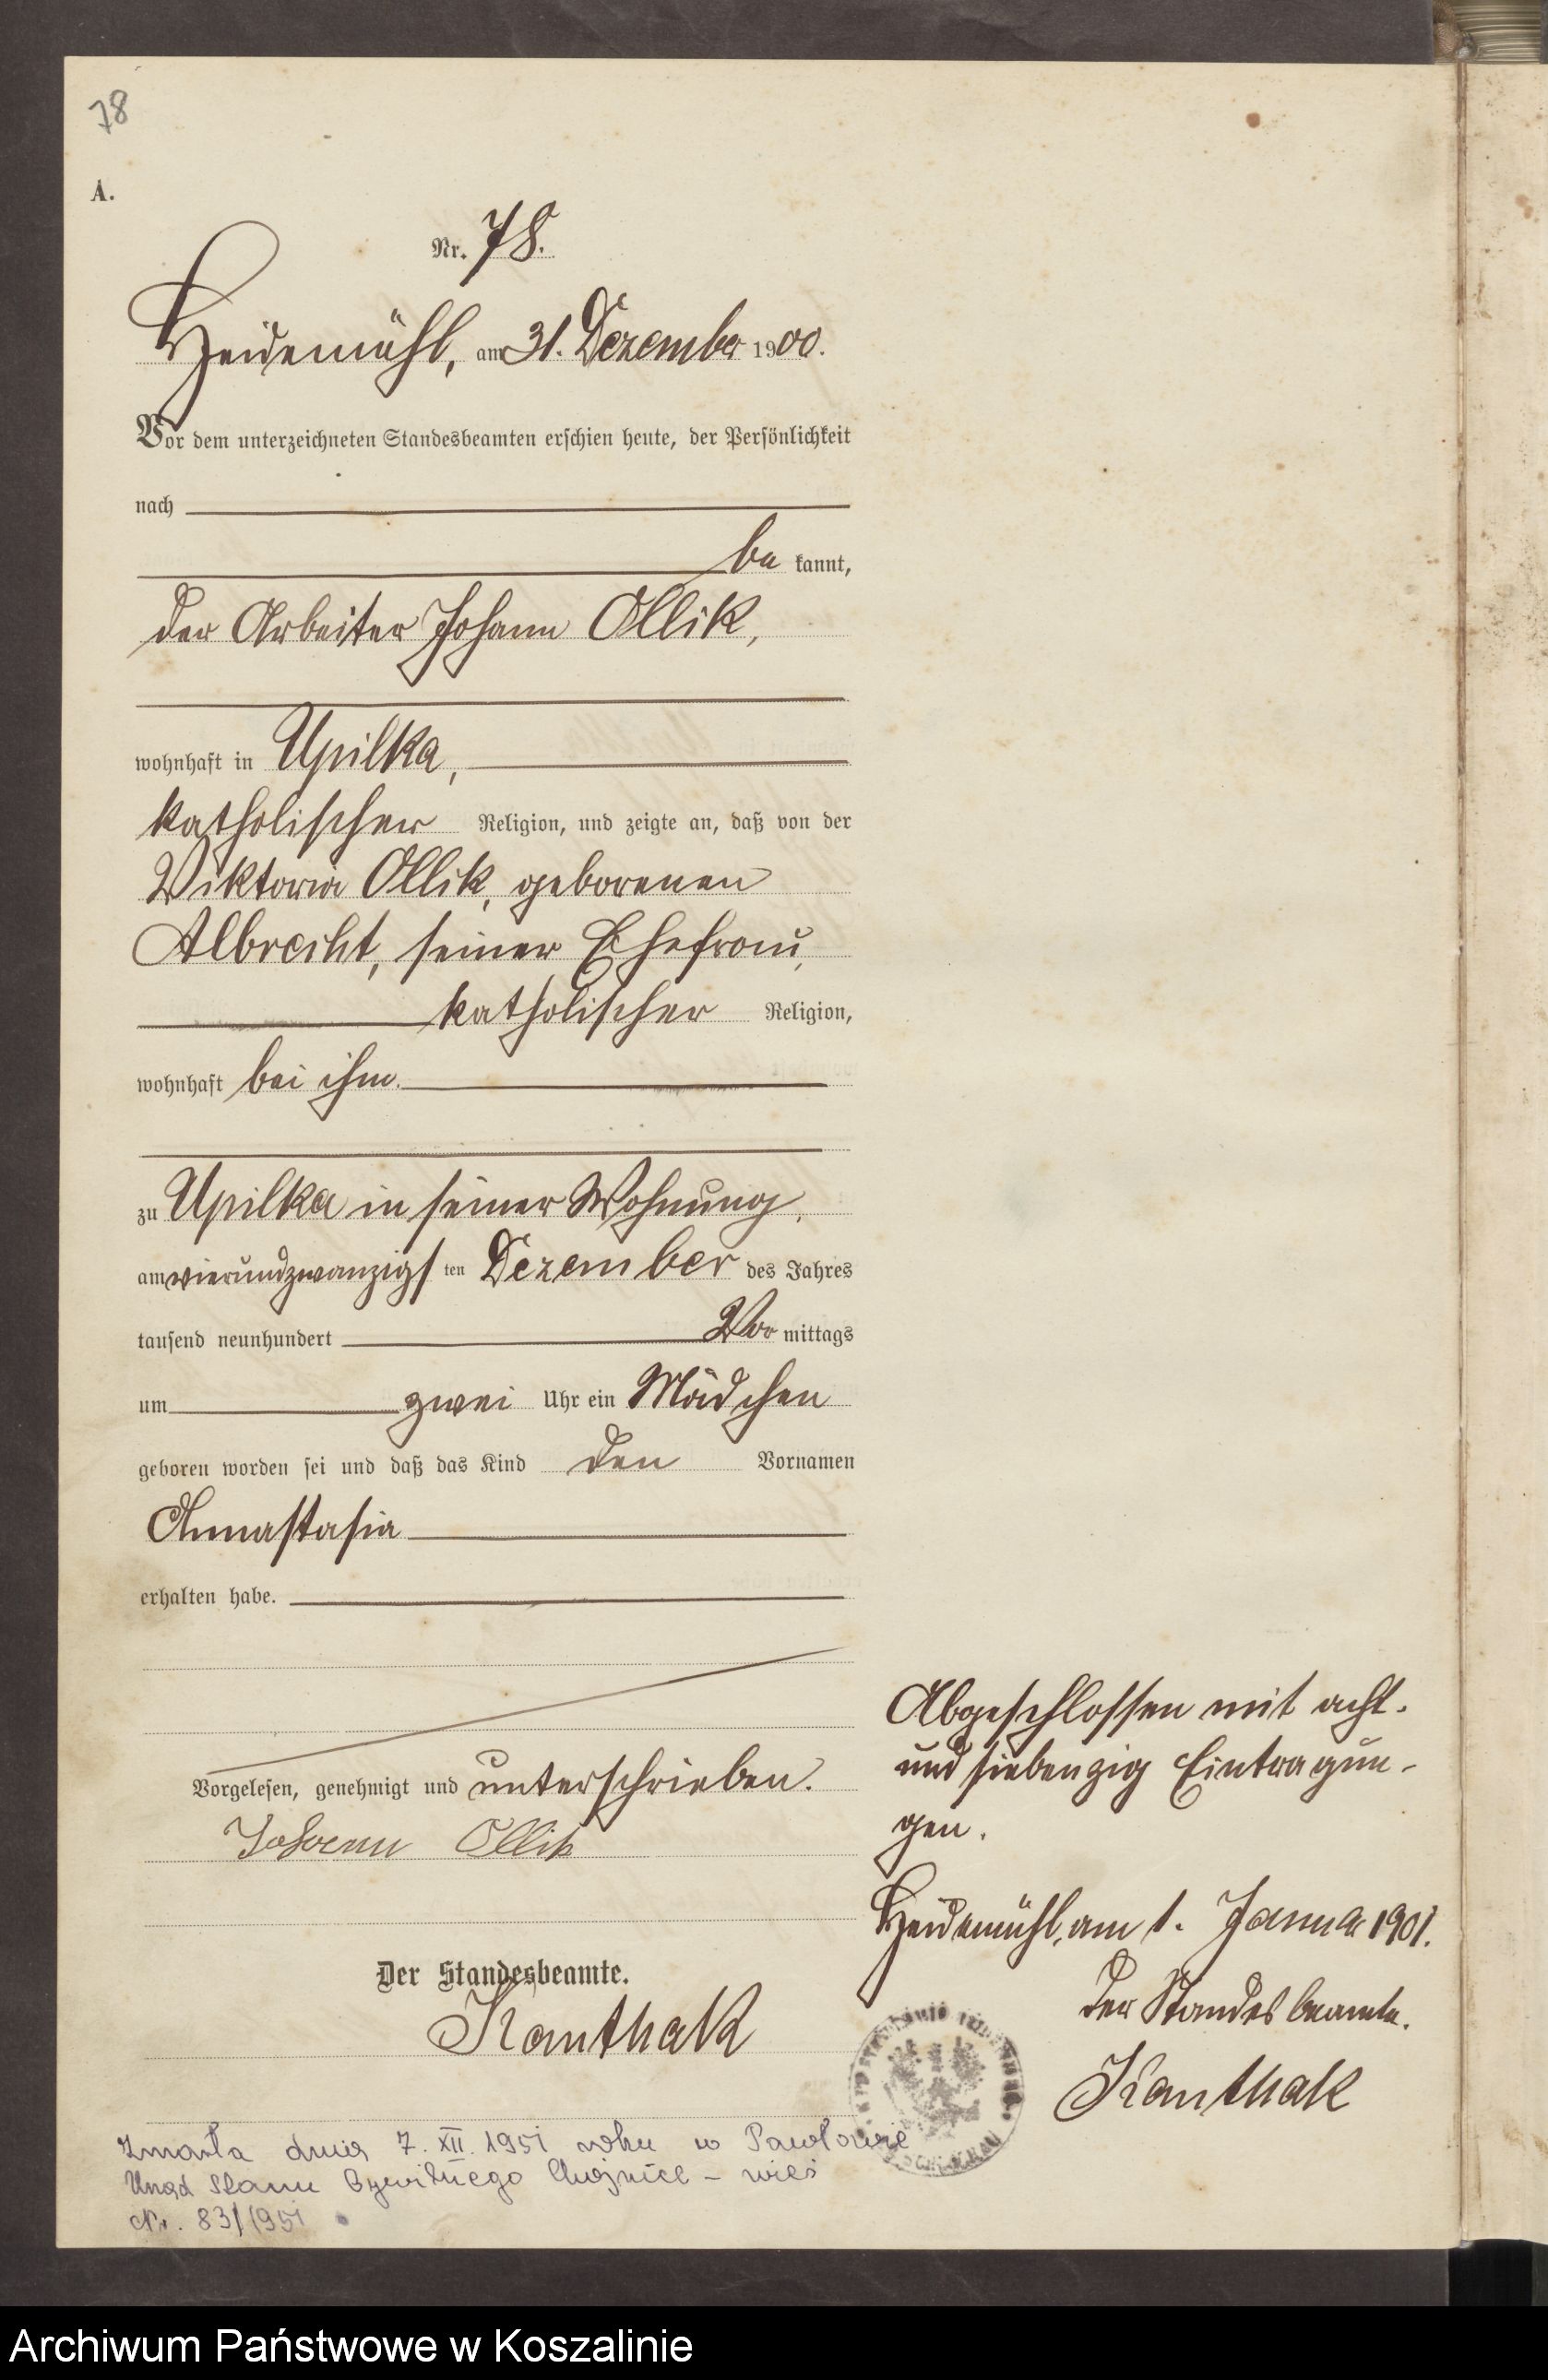 78
A.
Nr. 78.
Heidemühl, am 31. Dezember 1900.
Vor dem unterzeichneten Standesbeamten erschien heute, der Persönlichkeit
nach
be kannt,
der Arbeiter Johann Ollik,
wohnhaft in Upilka,
katholischer Religion, und zeigte an, daß von der
Viktoria Ollik, geborenen
Albrecht, seiner Ehefrau,
katholischer Religion,
wohnhaft bei ihm.
zu Upilka in seiner Wohnung,
am vierundzwanzigsten Dezember des Jahres
tausend neunhundert Vor mittags
um zwei Uhr ein Mädchen
geboren worden sei und daß das Kind den Vornamen
Annastasia
erhalten habe.
Vorgelesen, genehmigt und unterschrieben.
Johann Ollik
Der Standesbeamte.
Kanthak
Abgeschlossen mit acht-
und siebenzig Eintragun-
gen.
Heidemühl, am 1. Januar 1901.
Der Standesbeamte.
Kanthak
Zmarła dnia 7. XII. 1951 roku w Pawłowie
Urząd Stanu Cywilnego Chojnice - wieś
Nr. 83/1951
Archiwum Państwowe w Koszalinie